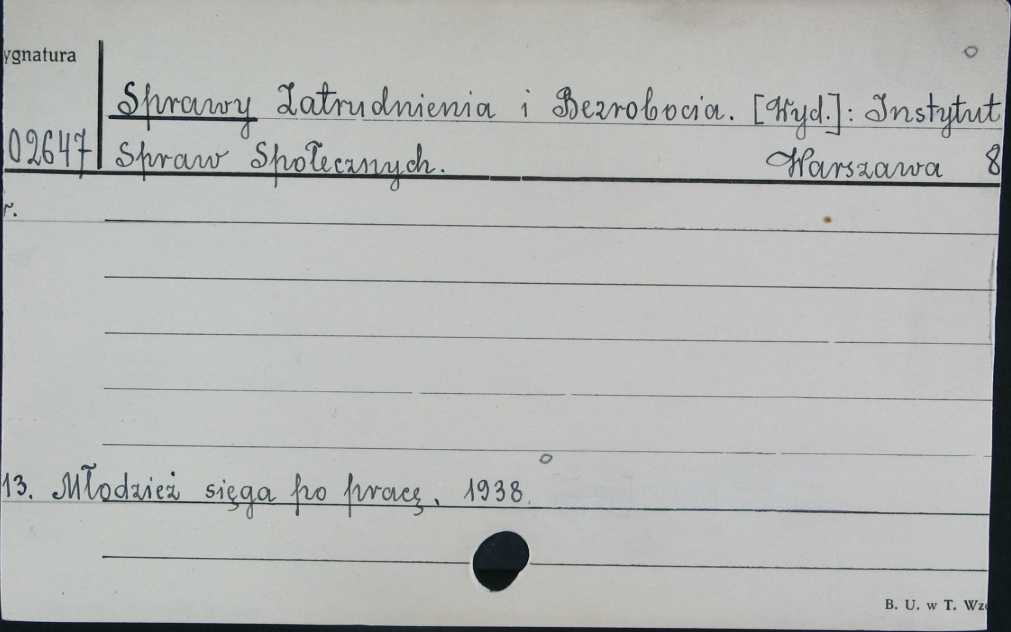 ygnatura
Sprawy Zatrudnienia i Bezrobocia. [Wyd.]: Instytut
02647 Spraw Społecznych. Warszawa 8
r.
13. Młodzież sięga po pracę, 1938.
B. U. w T. Wz